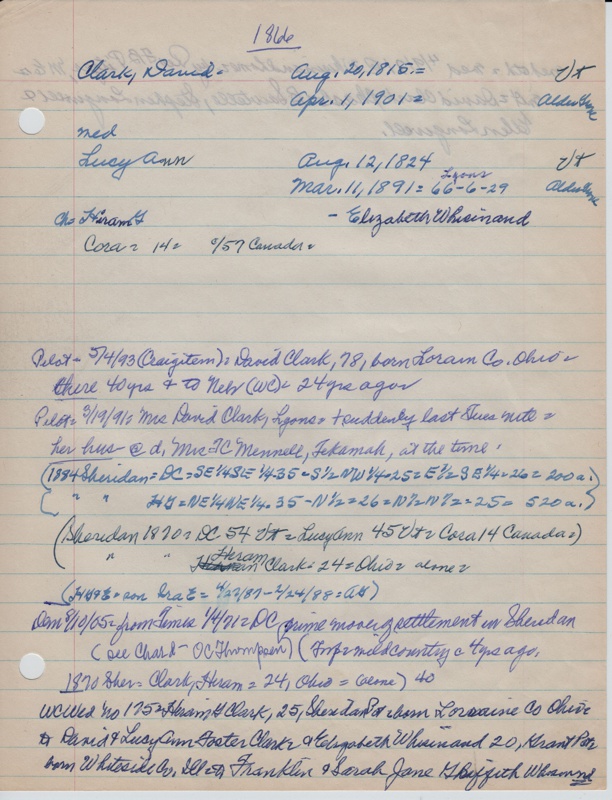 1866
Clark, David = Aug. 20, 1815 = Vt
Apr. 1, 1901 = Alder Grove
med
Lucy Ann Aug. 12, 1824 Vt
Lyons
Mar. 11, 1891 = 66-6-29 Alder Grove
Ch= Hiram G - Elizabeth Whisinand
Cora = 14 = c/57 Canada =
Pilot = 5/4/93 (Craig item) = David Clark, 78, born Lorain Co. Ohio =
there 40 yrs & to Nebr (WC) = 24 yrs ago =
Pilot = 3/19/91 = Mrs David Clark, Lyons = + suddenly last Tues nite =
her hus @ d, Mrs TC Mennell, Tekamah, at the time.
(1884 Sheridan = DC = SE 1/4 SE 1/4 35 = S 1/2 NW 1/4 = 25 = E 1/2 SE 1/4 = 26 = 200 a.)
( " " HG = NE 1/4 NE 1/4 35 - N 1/2 = 26 = = 25 = 520 a.)
(Sheridan 1870 = DC 54 Vt = Lucy Ann 45 Vt = Cora 14 Canada =)
" " Hiram Clark = 24 = Ohio = alone =
(HG & E = son Ira E = - 2/24/88 = AG)
Dem 8/10/05 = from Times 1/4/71 = DC, prime mover of settlement in Sheridan
(see Chard - OC Thompson) ( wild country = 4 yrs ago.
1870 Sher = Clark, Hiram = 24, Ohio = (alone) 40
WC Wed no 175 = Hiram G Clark, 25, Sheridan Pct born Loraine Co Ohio
to David & Lucy Ann Foster Clark & Elizabeth Whisinand 20, Grant Pct
born Whiteside Co, Ill to Franklin & Sarah Jane Griffith Whisinand